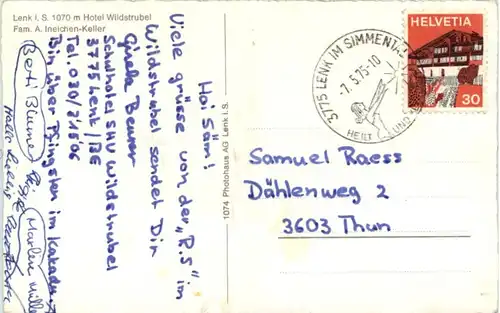 Lenk i. S. 1070 m Hotel Wildstrubel
Fam. A. Ineichen-Keller
Hoi Säm!
Viele grüsse von der „R.S" im
Wildstrubel sendet Dir
Gisela Beurer
Schulhotel SHV Wildstrubel
3775 Lenk / BE
Tel. 030/21506
Bin über Pfingsten im
Berti Blumer
Marlen Müller
Hallo
1074 Photohaus AG Lenk i.S.
3775 LENK IM SIMMENTAL
-7.5.75-10
HEILT UND
HELVETIA
30
Samuel Raess
Dählenweg 2
3603 Thun